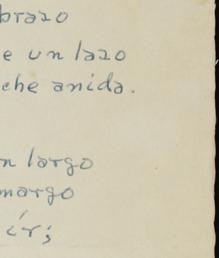 brazo
e un lazo
che anida.
n largo
margo
ír;